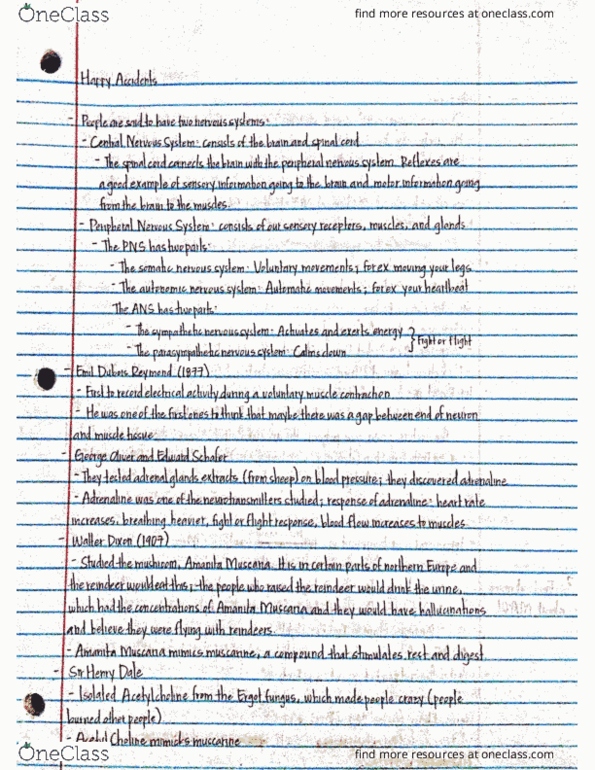 OneClass
find more resources at oneclass.com
Happy Accidents
- People are said to have two nervous systems:
- Central Nervous System: consists of the brain and spinal cord
- The spinal cord connects the brain with the peripheral nervous system. Reflexes are
a good example of sensory information going to the brain and motor information going
from the brain to the muscles.
- Peripheral Nervous System: consists of our sensory receptors, muscles, and glands
- The PNS has two parts:
- The somatic nervous system: Voluntary movements; for ex moving your legs
- The autonomic nervous system: Automatic movements; for ex your heartbeat
The ANS has two parts:
- The sympathetic nervous system: Activates and exerts energy
- The parasympathetic nervous system: Calms down
} Fight or flight
- Emil Dubois Reymond (1877)
- First to record electrical activity during a voluntary muscle contraction
- He was one of the first ones to think that maybe there was a gap between end of neuron
and muscle tissue
- George Oliver and Edward Schafer
- They tested adrenal glands extracts (from sheep) on blood pressure; they discovered adrenaline
- Adrenaline was one of the neurotransmitters studied; response of adrenaline: heart rate
increases, breathing heavier, fight or flight response, blood flow increases to muscles
- Walter Dixon (1907)
- Studied the mushroom, Amanita Muscaria. It is in certain parts of northern Europe and
the reindeer would eat this; the people who raised the reindeer would drink the urine,
which had the concentrations of Amanita Muscaria and they would have hallucinations
and believe they were flying with reindeers.
- Amanita Muscaria mimics muscarine, a compound that stimulates rest and digest
- Sir Henry Dale
- Isolated Acetylcholine from the Ergot fungus, which made people crazy (people
burned other people)
- Acetyl Choline mimicks muscarine
OneClass
find more resources at oneclass.com